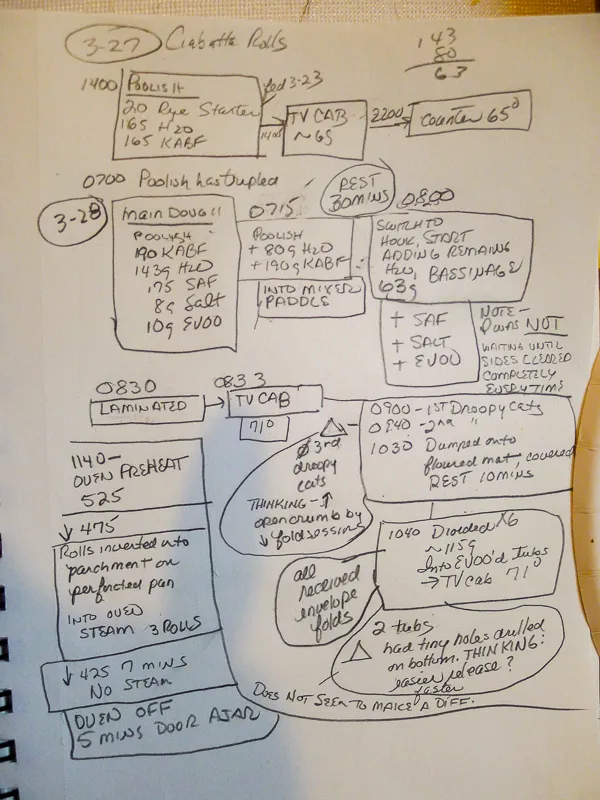 3-27 Ciabatta Rolls
143
80
63
1400
POOLISH
fed 3-23
20 Rye Starter
165 H2O
165 KABF
1400
TV CAB
~65
2200
Counter 65°
0700 Poolish has tripled
3-28
MAIN DOUGH
POOLISH
190 KABF
143g H2O
.175 SAF
8g Salt
10g EVOO
0715
POOLISH
+ 80g H2O
+ 190g KABF
INTO MIXER
PADDLE
REST
30 MINS
0800
SWITCH TO
HOOK, START
ADDING REMAINING
H2O, BASSINAGE
63g
+ SAF
+ SALT
+ EVOO
NOTE-
I WAS NOT
WAITING UNTIL
SIDES CLEARED
COMPLETELY
EVERYTIME
0830
LAMINATED
0833
TV CAB
71°
0900 - 1ST Droopy cats
0940 - 2nd "
1030 Dumped onto
floured mat, covered
REST 10 MINS
△
Ø 3rd
droopy
cats
THINKING - ↑
open crumb by
↓ fold sessions
1040 Divided X6
~115g
Into EVOO'd Tubs
→ TV cab 71°
all
received
envelope
folds
2 tubs
△ had tiny holes drilled
on bottom. THINKING:
easier release?
faster
DOES NOT SEEM TO MAKE A DIFF.
1140-
OVEN PREHEAT
525
↓ 475
Rolls inverted onto
parchment on
perforated pan
INTO OVEN
STEAM 3 ROLLS
↓ 425 7 MINS
NO STEAM
OVEN OFF
5 MINS DOOR AJAR